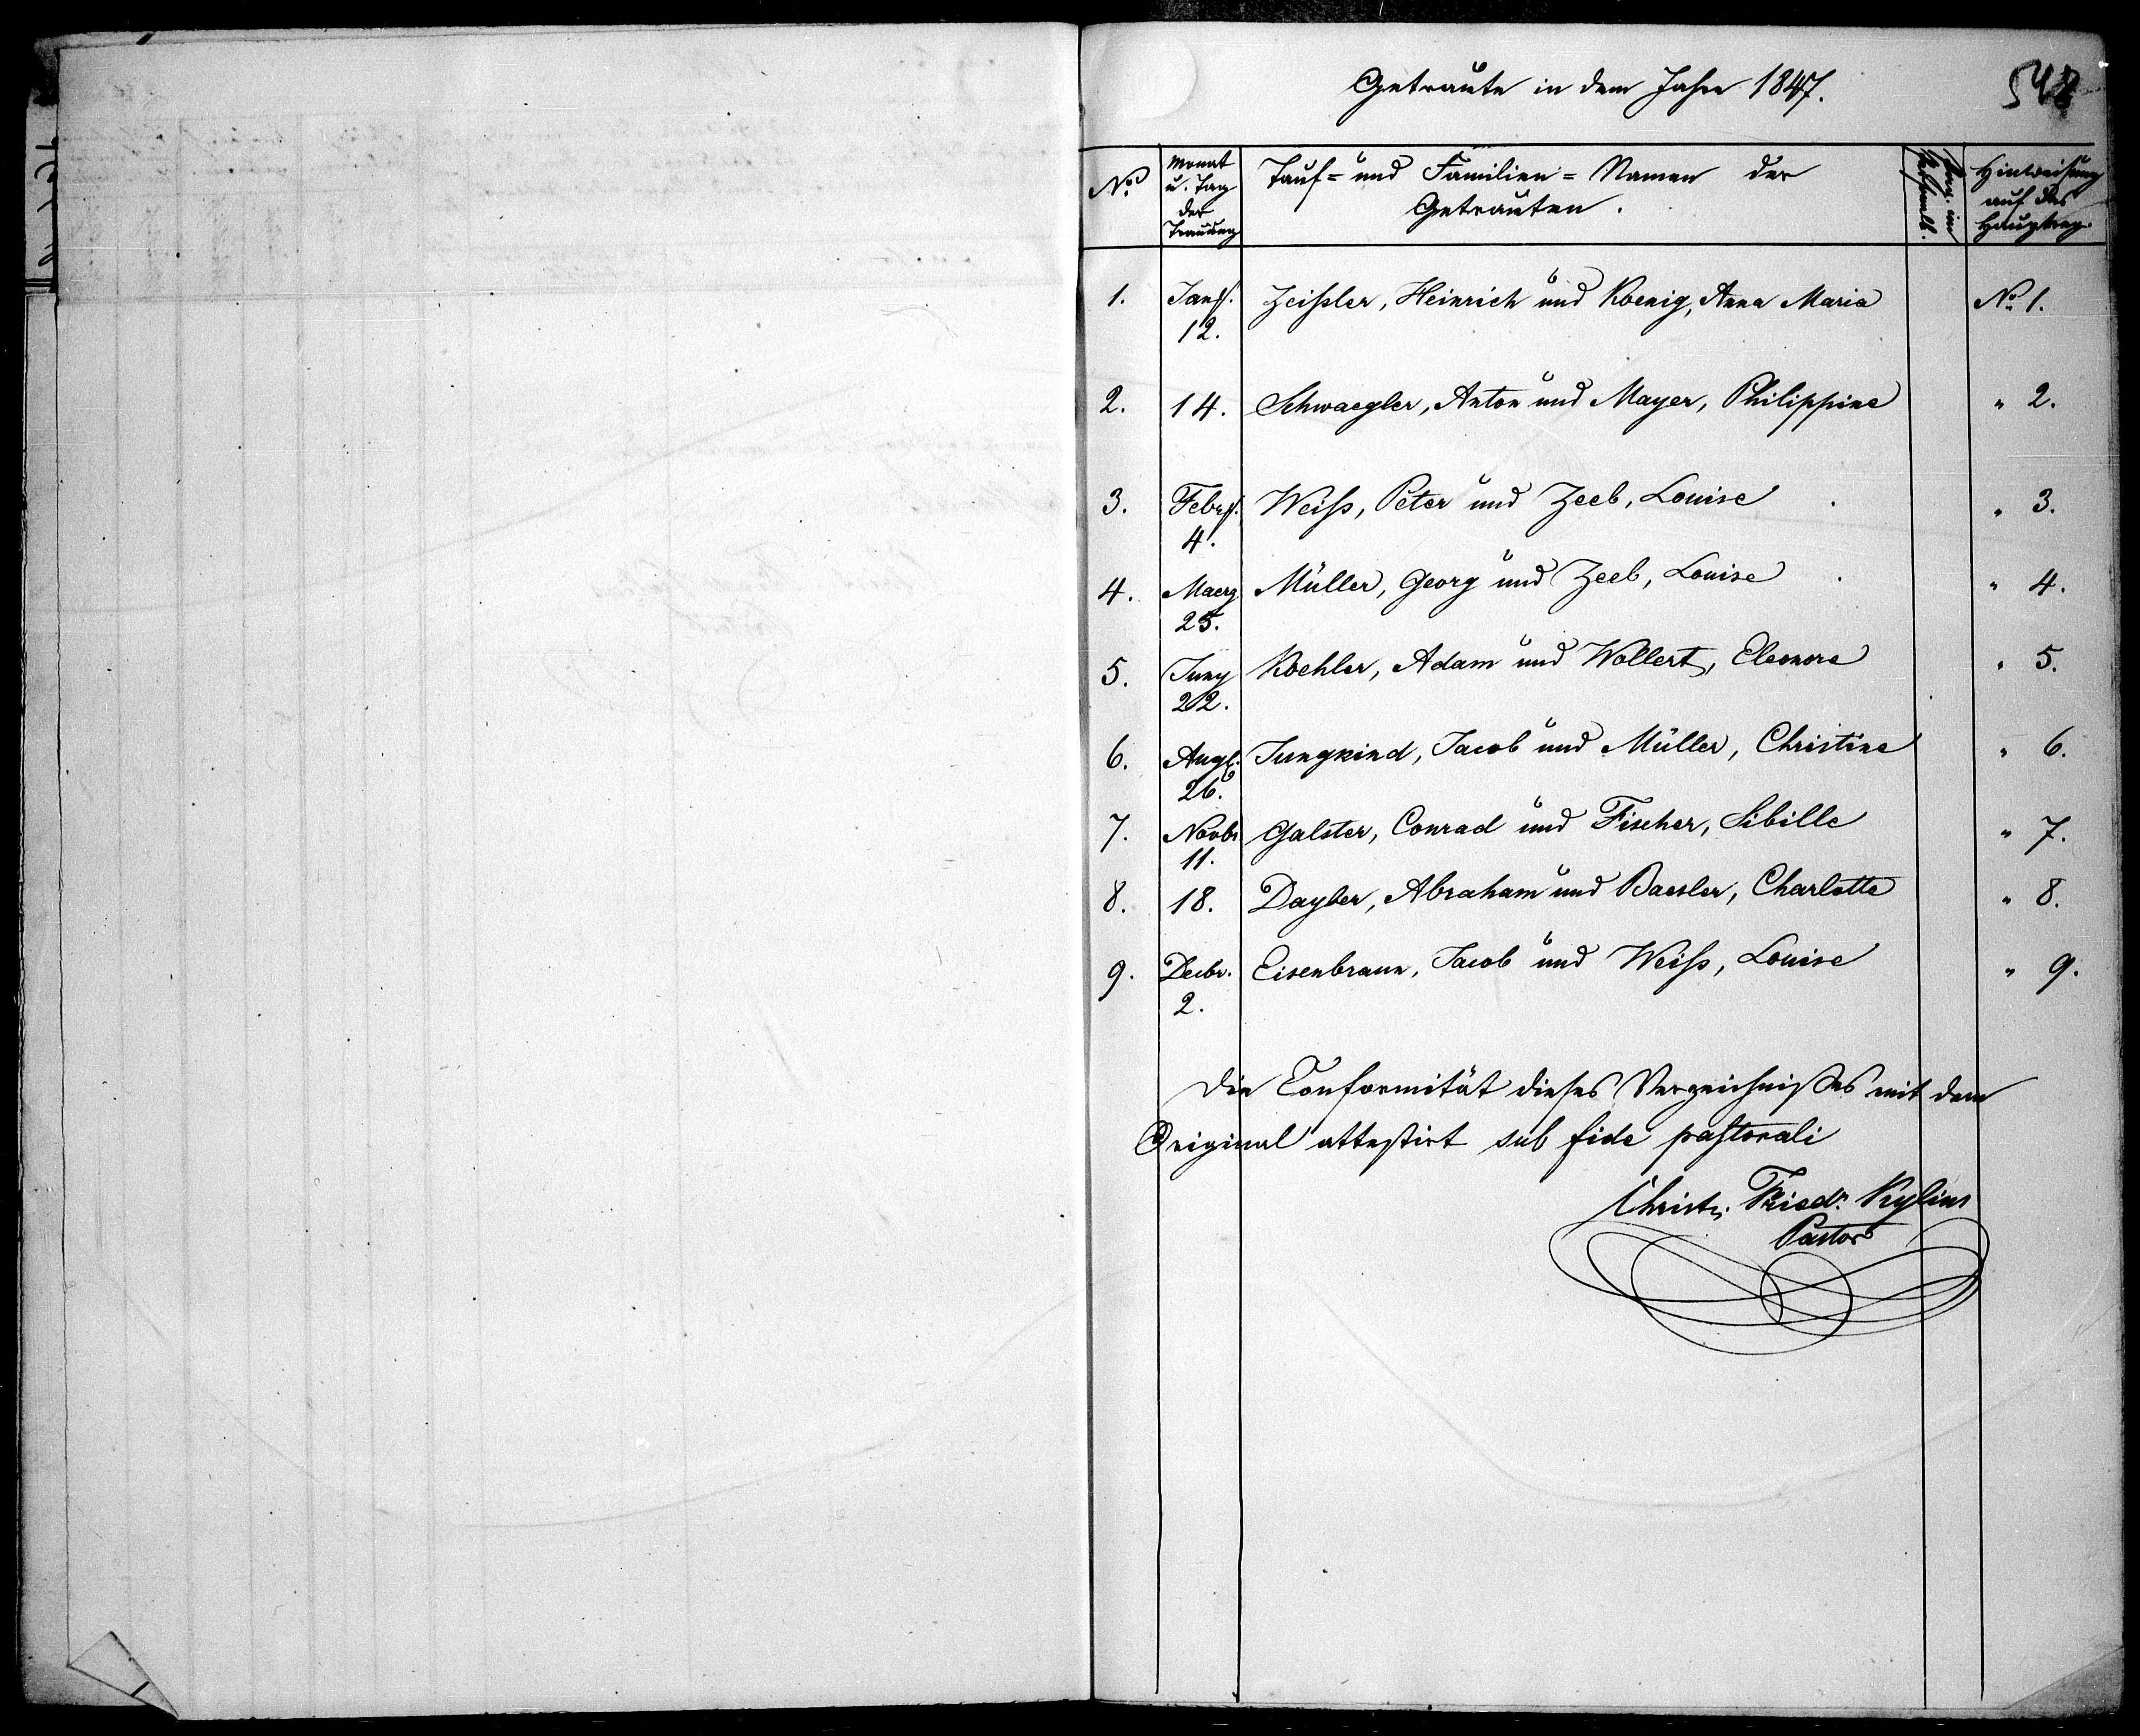 Getraute in dem Jahre 1847.
548
No.
Monat
u. Tag
der
Trauung
Tauf- und Familien-Namen der
Getrauten.
Hinweisung
auf das
Hauptreg.
1. Jan. Zeißler, Heinrich und Koenig, Anna Maria No. 1.
12.
2. 14. Schwaegler, Anton und Mayer, Philippine " 2.
3. Febr. Weiß, Peter und Zeeb, Louise " 3.
4.
4. Maerz Müller, Georg und Zeeb, Louise " 4.
25.
5. Juny Koehler, Adam und Wollert, Eleonore " 5.
22.
6. Aug. Jungkind, Jacob und Müller, Christine " 6.
26.
7. Novbr Galster, Conrad und Fischer, Sibille " 7.
11.
8. 18. Dayber, Abraham und Baesler, Charlotte " 8.
9. Decbr. Eisenbraun, Jacob und Weiß, Louise " 9.
2.
Die Conformität dieses Verzeichnißes mit dem
Original attestirt sub fide pastorali
Christ. Friedr. Kylius
Pastor